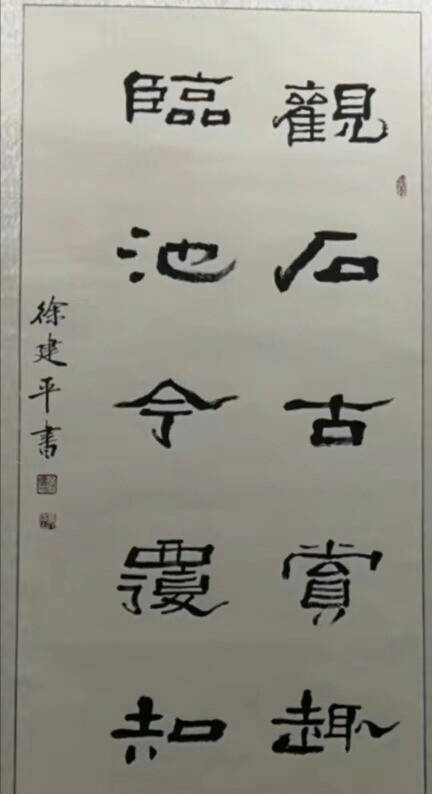 觀石古賞趣
臨池今覆知
徐建平書